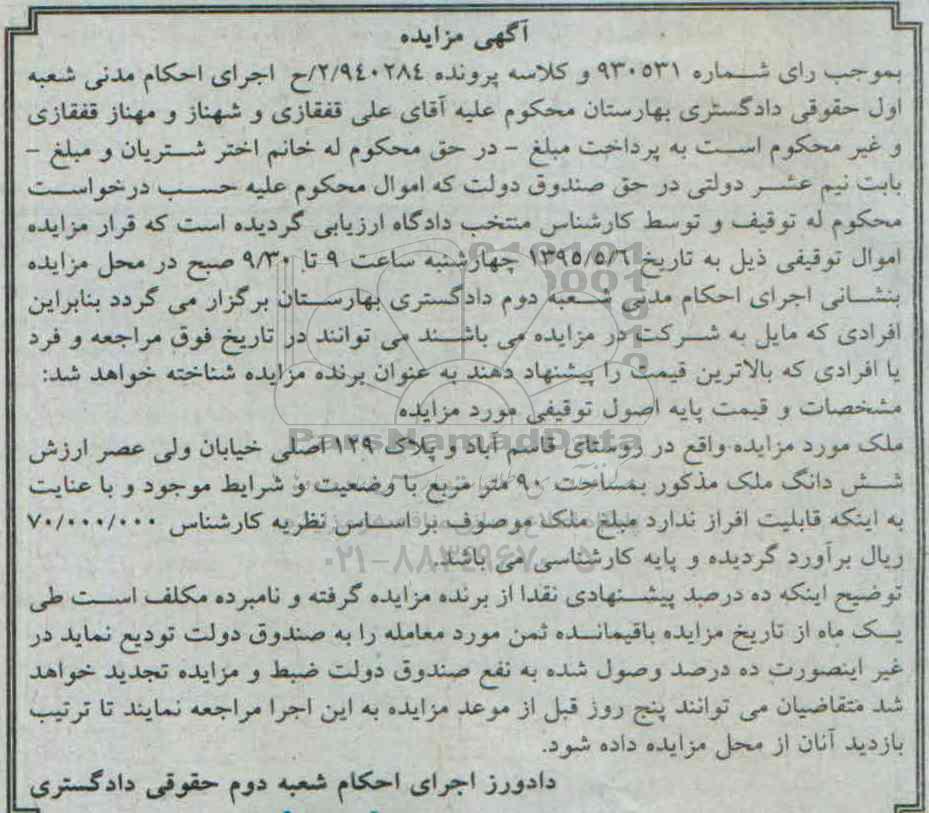 آگهی مزایده
بموجب رای شماره ۹۳۰۵۳۱ و کلاسه پرونده ۲/۹٤۰۲۸٤/ح اجرای احکام مدنی شعبه
اول حقوقی دادگستری بهارستان محکوم علیه آقای علی قفقازی و شهناز و مهناز قفقازی
و غیر محکوم است به پرداخت مبلغ – در حق محکوم له خانم اختر شتریان و مبلغ –
بابت نیم عشر دولتی در حق صندوق دولت که اموال محکوم علیه حسب درخواست
محکوم له توقیف و توسط کارشناس منتخب دادگاه ارزیابی گردیده است که قرار مزایده
اموال توقیفی ذیل به تاریخ ۱۳۹۵/۵/٦ چهارشنبه ساعت ۹ تا ۹/۳۰ صبح در محل مزایده
بنشانی اجرای احکام مدنی شعبه دوم دادگستری بهارستان برگزار می گردد بنابراین
افرادی که مایل به شرکت در مزایده می باشند می توانند در تاریخ فوق مراجعه و فرد
یا افرادی که بالاترین قیمت را پیشنهاد دهند به عنوان برنده مزایده شناخته خواهد شد:
مشخصات و قیمت پایه اصول توقیفی مورد مزایده
ParsNamadData
ملک مورد مزایده واقع در روستای قاسم آباد و پلاک ۱۲۹ اصلی خیابان ولی عصر ارزش
شش دانگ ملک مذکور بمساحت ۹۰ متر مربع با وضعیت و شرایط موجود و با عنایت
به اینکه قابلیت افراز ندارد مبلغ ملک موصوف بر اساس نظریه کارشناس ۷۰/۰۰۰/۰۰۰
ریال برآورد گردیده و پایه کارشناسی می باشد.
توضیح اینکه ده درصد پیشنهادی نقدا از برنده مزایده گرفته و نامبرده مکلف است طی
یک ماه از تاریخ مزایده باقیمانده ثمن مورد معامله را به صندوق دولت تودیع نماید در
غیر اینصورت ده درصد وصول شده به نفع صندوق دولت ضبط و مزایده تجدید خواهد
شد متقاضیان می توانند پنج روز قبل از موعد مزایده به این اجرا مراجعه نمایند تا ترتیب
بازدید آنان از محل مزایده داده شود.
دادورز اجرای احکام شعبه دوم حقوقی دادگستری